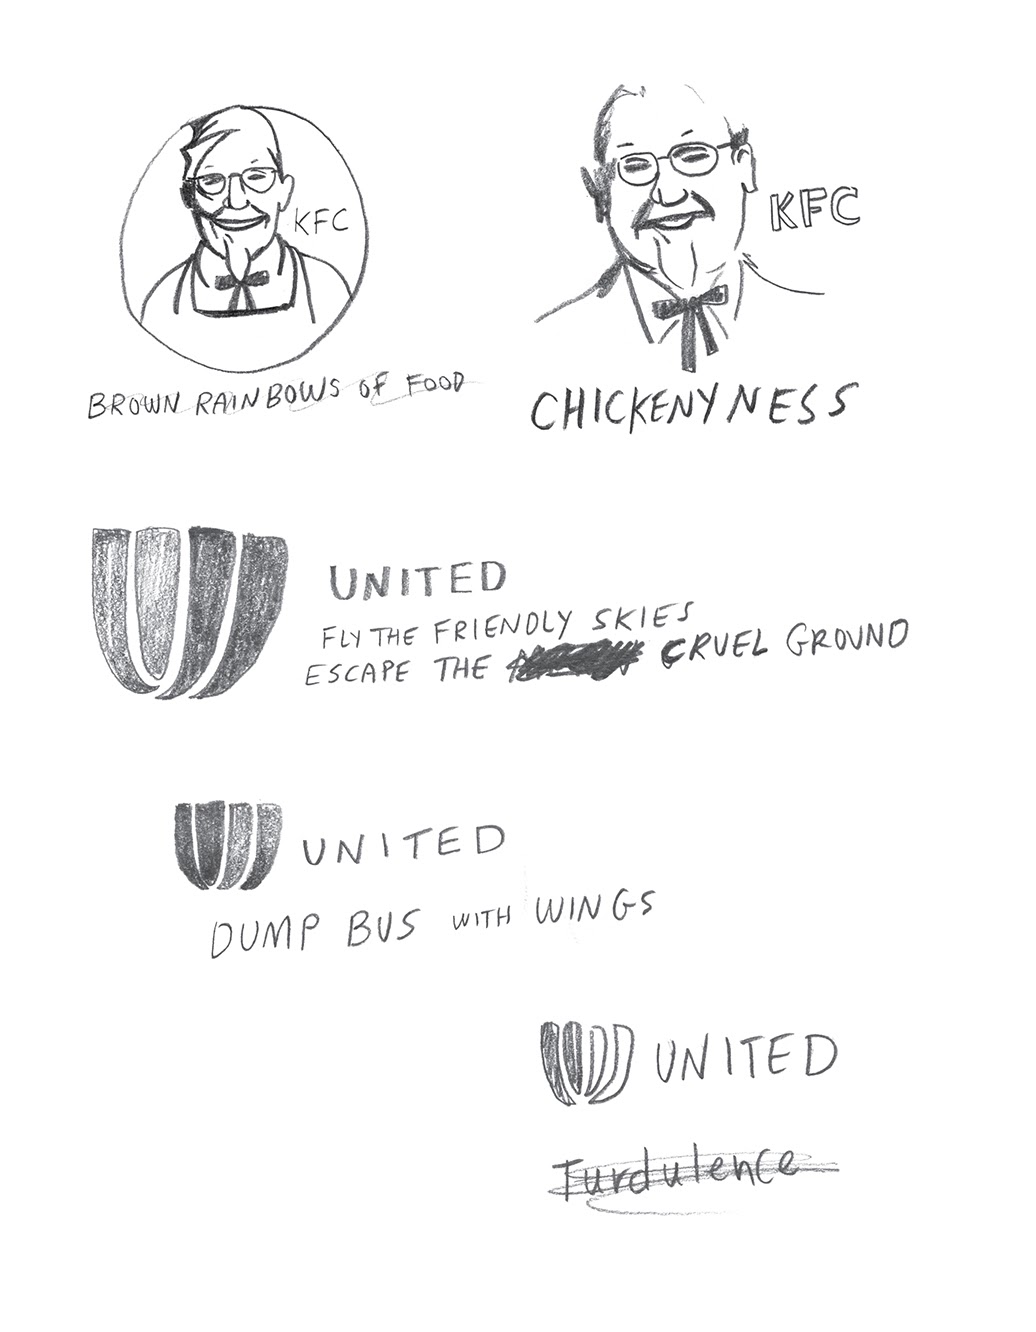 KFC
BROWN RAINBOWS OF FOOD
KFC
CHICKENYNESS
UNITED
FLY THE FRIENDLY SKIES
ESCAPE THE CRUEL GROUND
UNITED
DUMP BUS WITH WINGS
UNITED
Turdulence